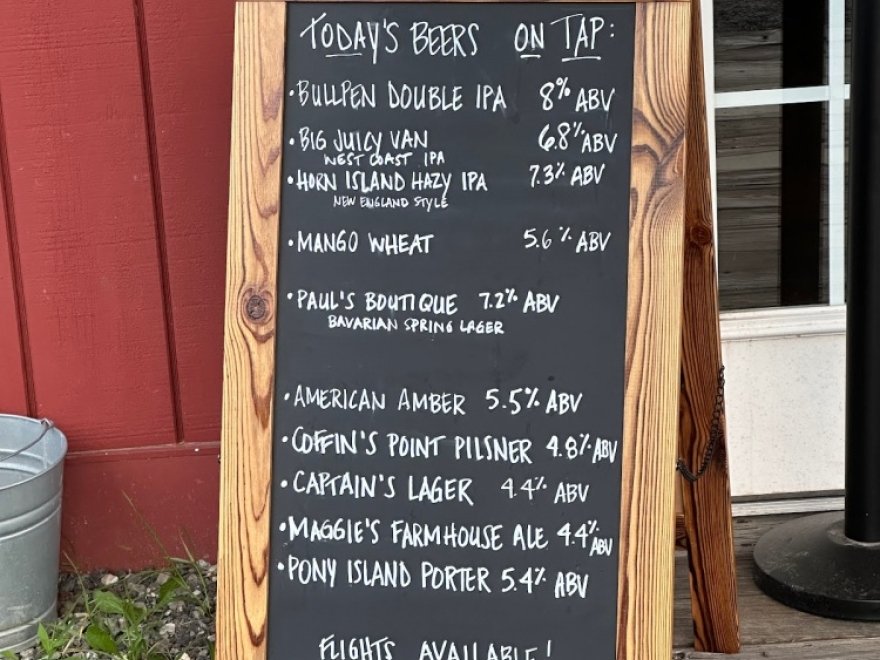 TODAY'S BEERS ON TAP:
•BULLPEN DOUBLE IPA 8% ABV
•BIG JUICY VAN 6.8% ABV
WEST COAST IPA
•HORN ISLAND HAZY IPA 7.3% ABV
NEW ENGLAND STYLE
•MANGO WHEAT 5.6% ABV
•PAUL'S BOUTIQUE 7.2% ABV
BAVARIAN SPRING LAGER
•AMERICAN AMBER 5.5% ABV
•COFFIN'S POINT PILSNER 4.8% ABV
•CAPTAIN'S LAGER 4.4% ABV
•MAGGIE'S FARMHOUSE ALE 4.4% ABV
•PONY ISLAND PORTER 5.4% ABV
FLIGHTS AVAILABLE!